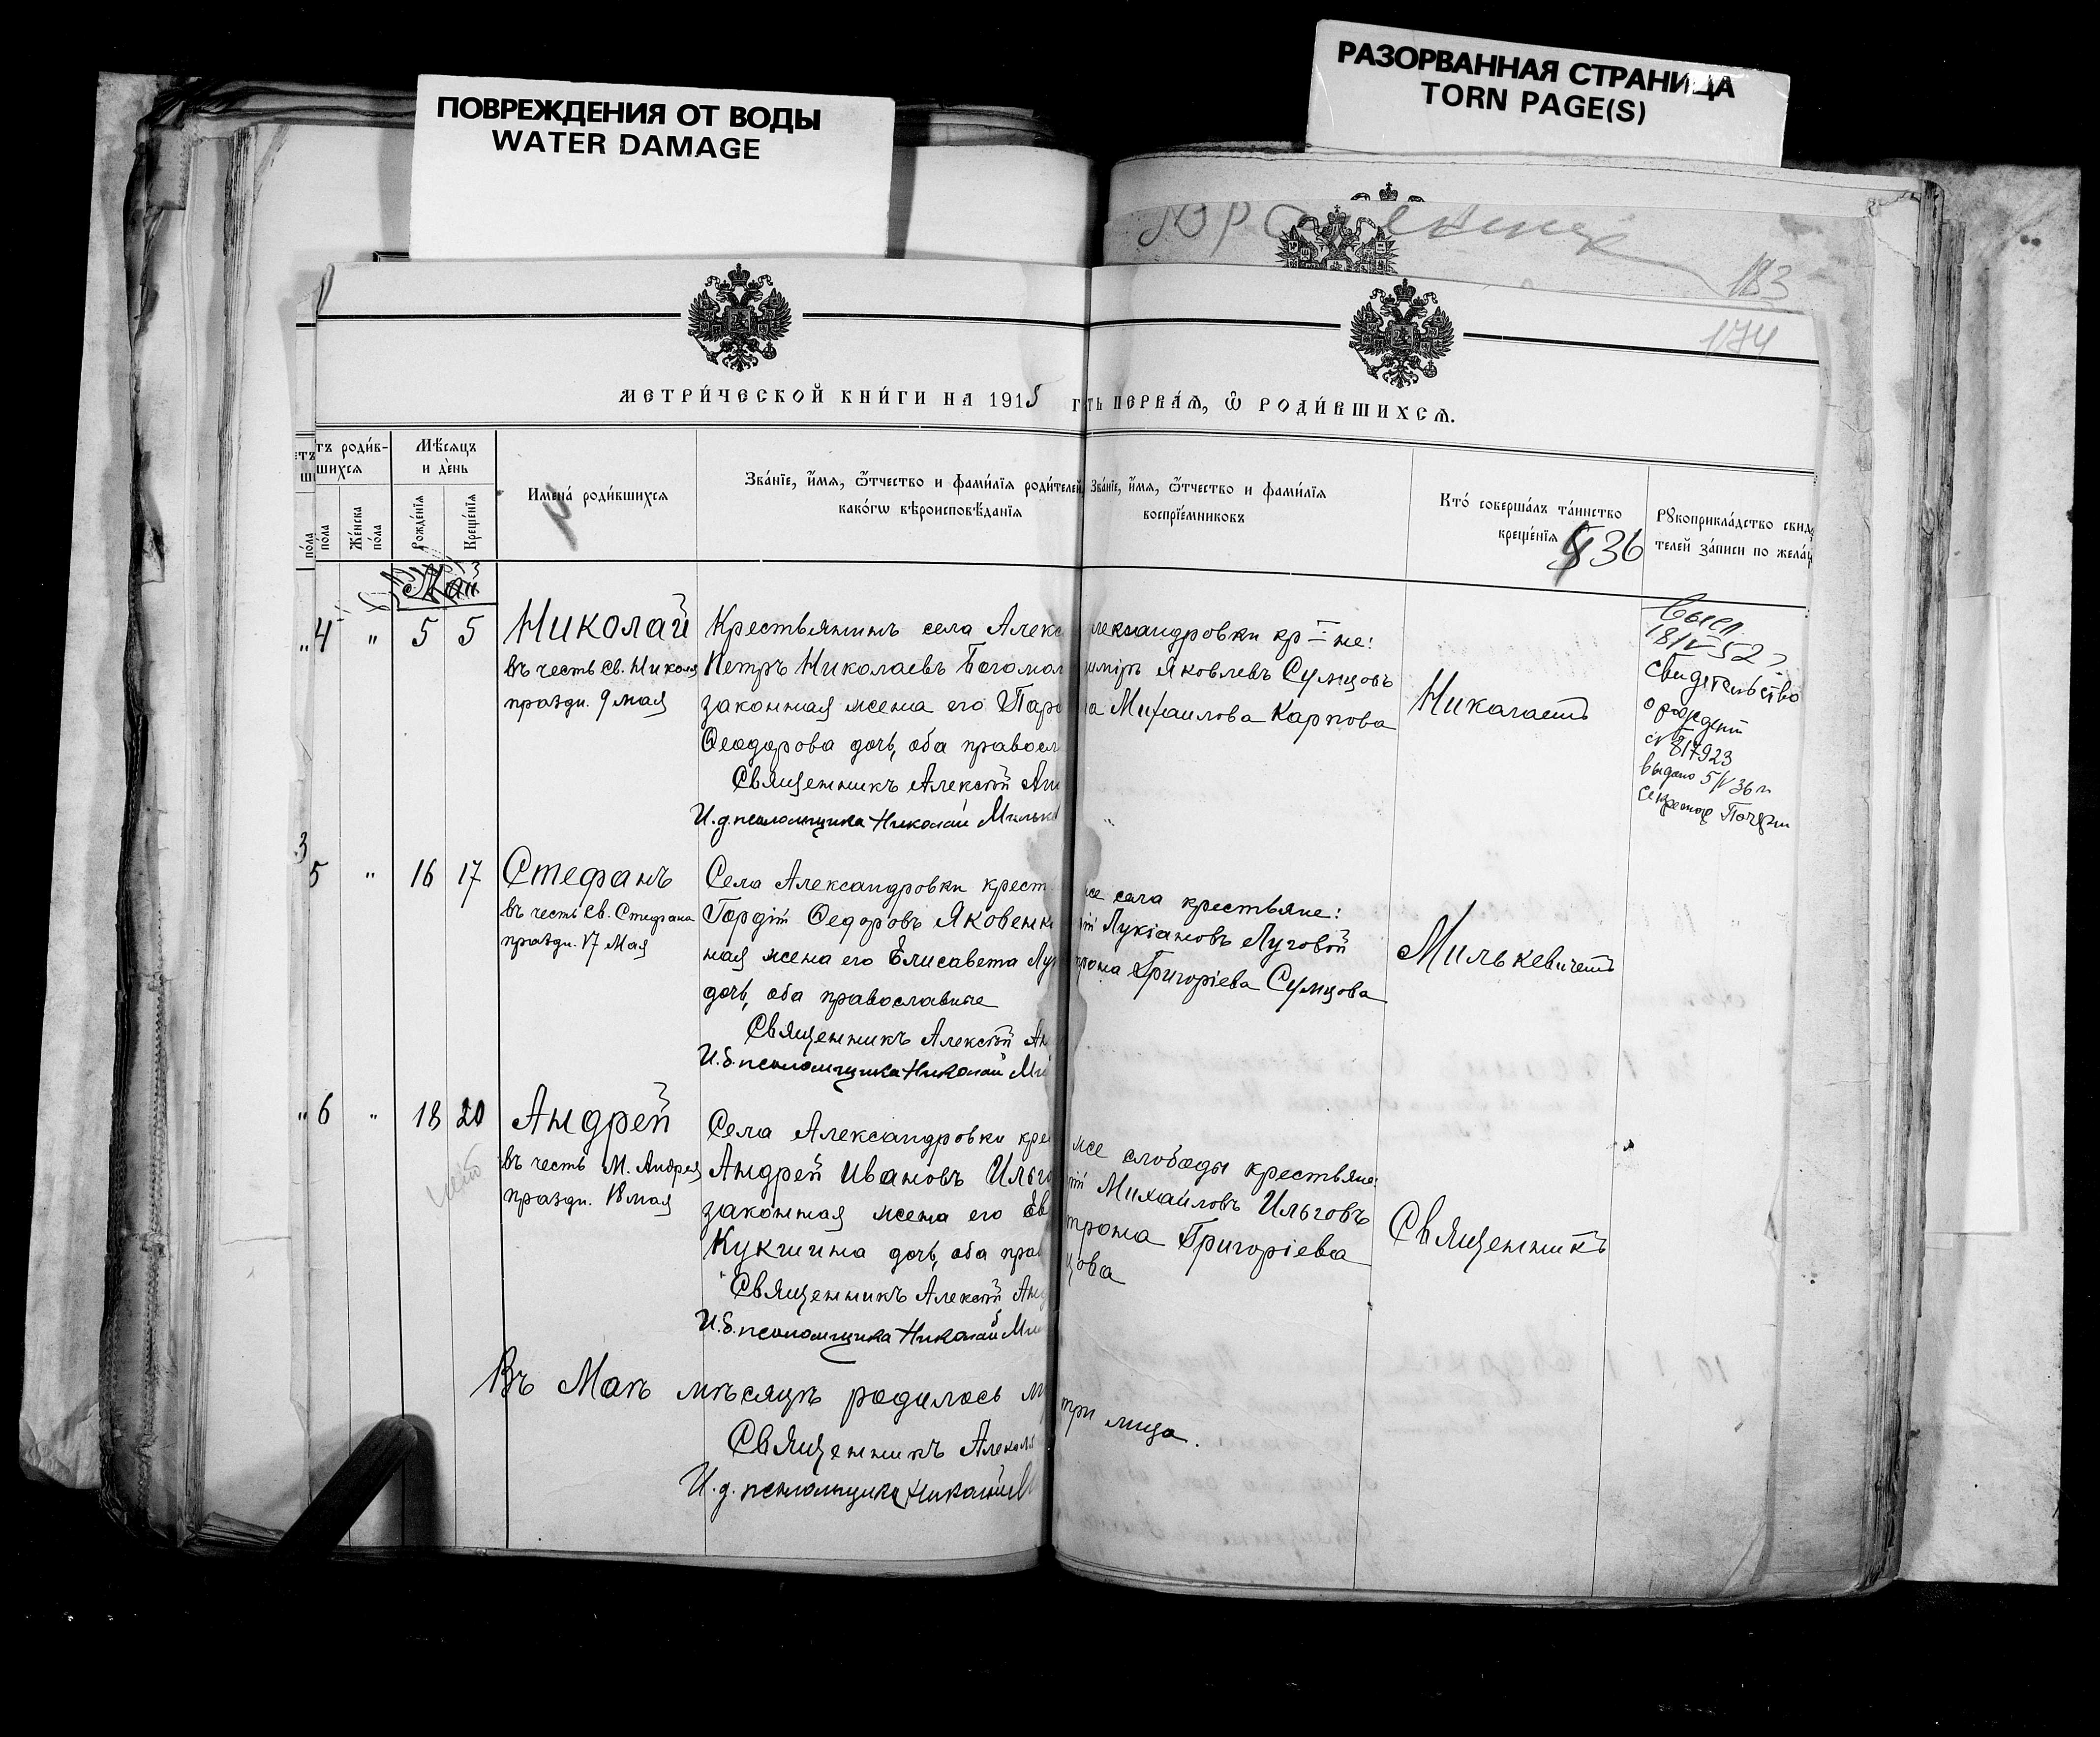 ПОВРЕЖДЕНИЯ ОТ ВОДЫ
WATER DAMAGE
РАЗОРВАННАЯ СТРАНИЦА
TORN PAGE(S)
183
174
МЕТРИ́ЧЕСКОЙ КНИ́ГИ НА 1915 г
ть ПЕРВА́Я, Ѿ РОДИ́ВШИХСЯ.
тъ роди́в-
шихся
Мѣ́сяцъ
и де́нь
пола
Же́нска
по́ла
Рожде́нїя
Креще́нїя
Имена́ роди́вшихся
Зва́нїе, и́мя, ѻ҆́тчество и фами́лїя роди́телей
како́гѡ вѣроисповѣ́данїя
Зва́нїе, и́мя, ѻ҆́тчество и фами́лїя
воспрїе́мниковъ
Кто́ соверша́лъ та́инство
креще́нїя
§36
Рꙋкоприкла́дство свидѣ
телей за́писи по жела́
Май
„ 4 „ 5 5
Николай
въ честь Св. Николая
праздн. 9 мая
Крестьянинъ села Алекс
Петръ Николаевъ Богомол
законная жена его Пара
Ѳеодорова дочь, оба правосл
Священникъ Алексѣй Ан
И. д. псаломщика Николай Мильке
лександровки кр-не:
имiръ Яковлевъ Сумцовъ
на Михаилова Карпова
Николаемъ
высл
18/V 52 г
свидетельство
о рожден
№ 817923
выдано 5/V 36 г
секретар
3
5 „ 16 17
Стефанъ
въ честь Св. Стефана
праздн. 17 Мая
Села Александровки крест
Гордій Ѳедоровъ Яковенко
ная жена его Елисавета Лук
дочь, оба православные
Священникъ Алексѣй Ан
И. д. псаломщика Николай Ми
же села крестьяне:
ій Лукіановъ Луговой
рона Григоріева Сумцова
Милькевичемъ
„ 6 „ 18 20
Андрей
въ честь М. Андрея
праздн. 18 мая
Села Александровки кре
Андрей Ивановъ Ильго
законная жена его Ев
Кукшина дочь, оба прав
Священникъ Алексѣй Анд
И. д. псаломщика Николай Ми
же слободы крестьяне:
ій Михаиловъ Ильговъ
трона Григоріева
цова
Священникъ
Въ Маѣ мѣсяцѣ родилось м
три лица.
Священникъ Алексѣ
И. д. псаломщика Николай М